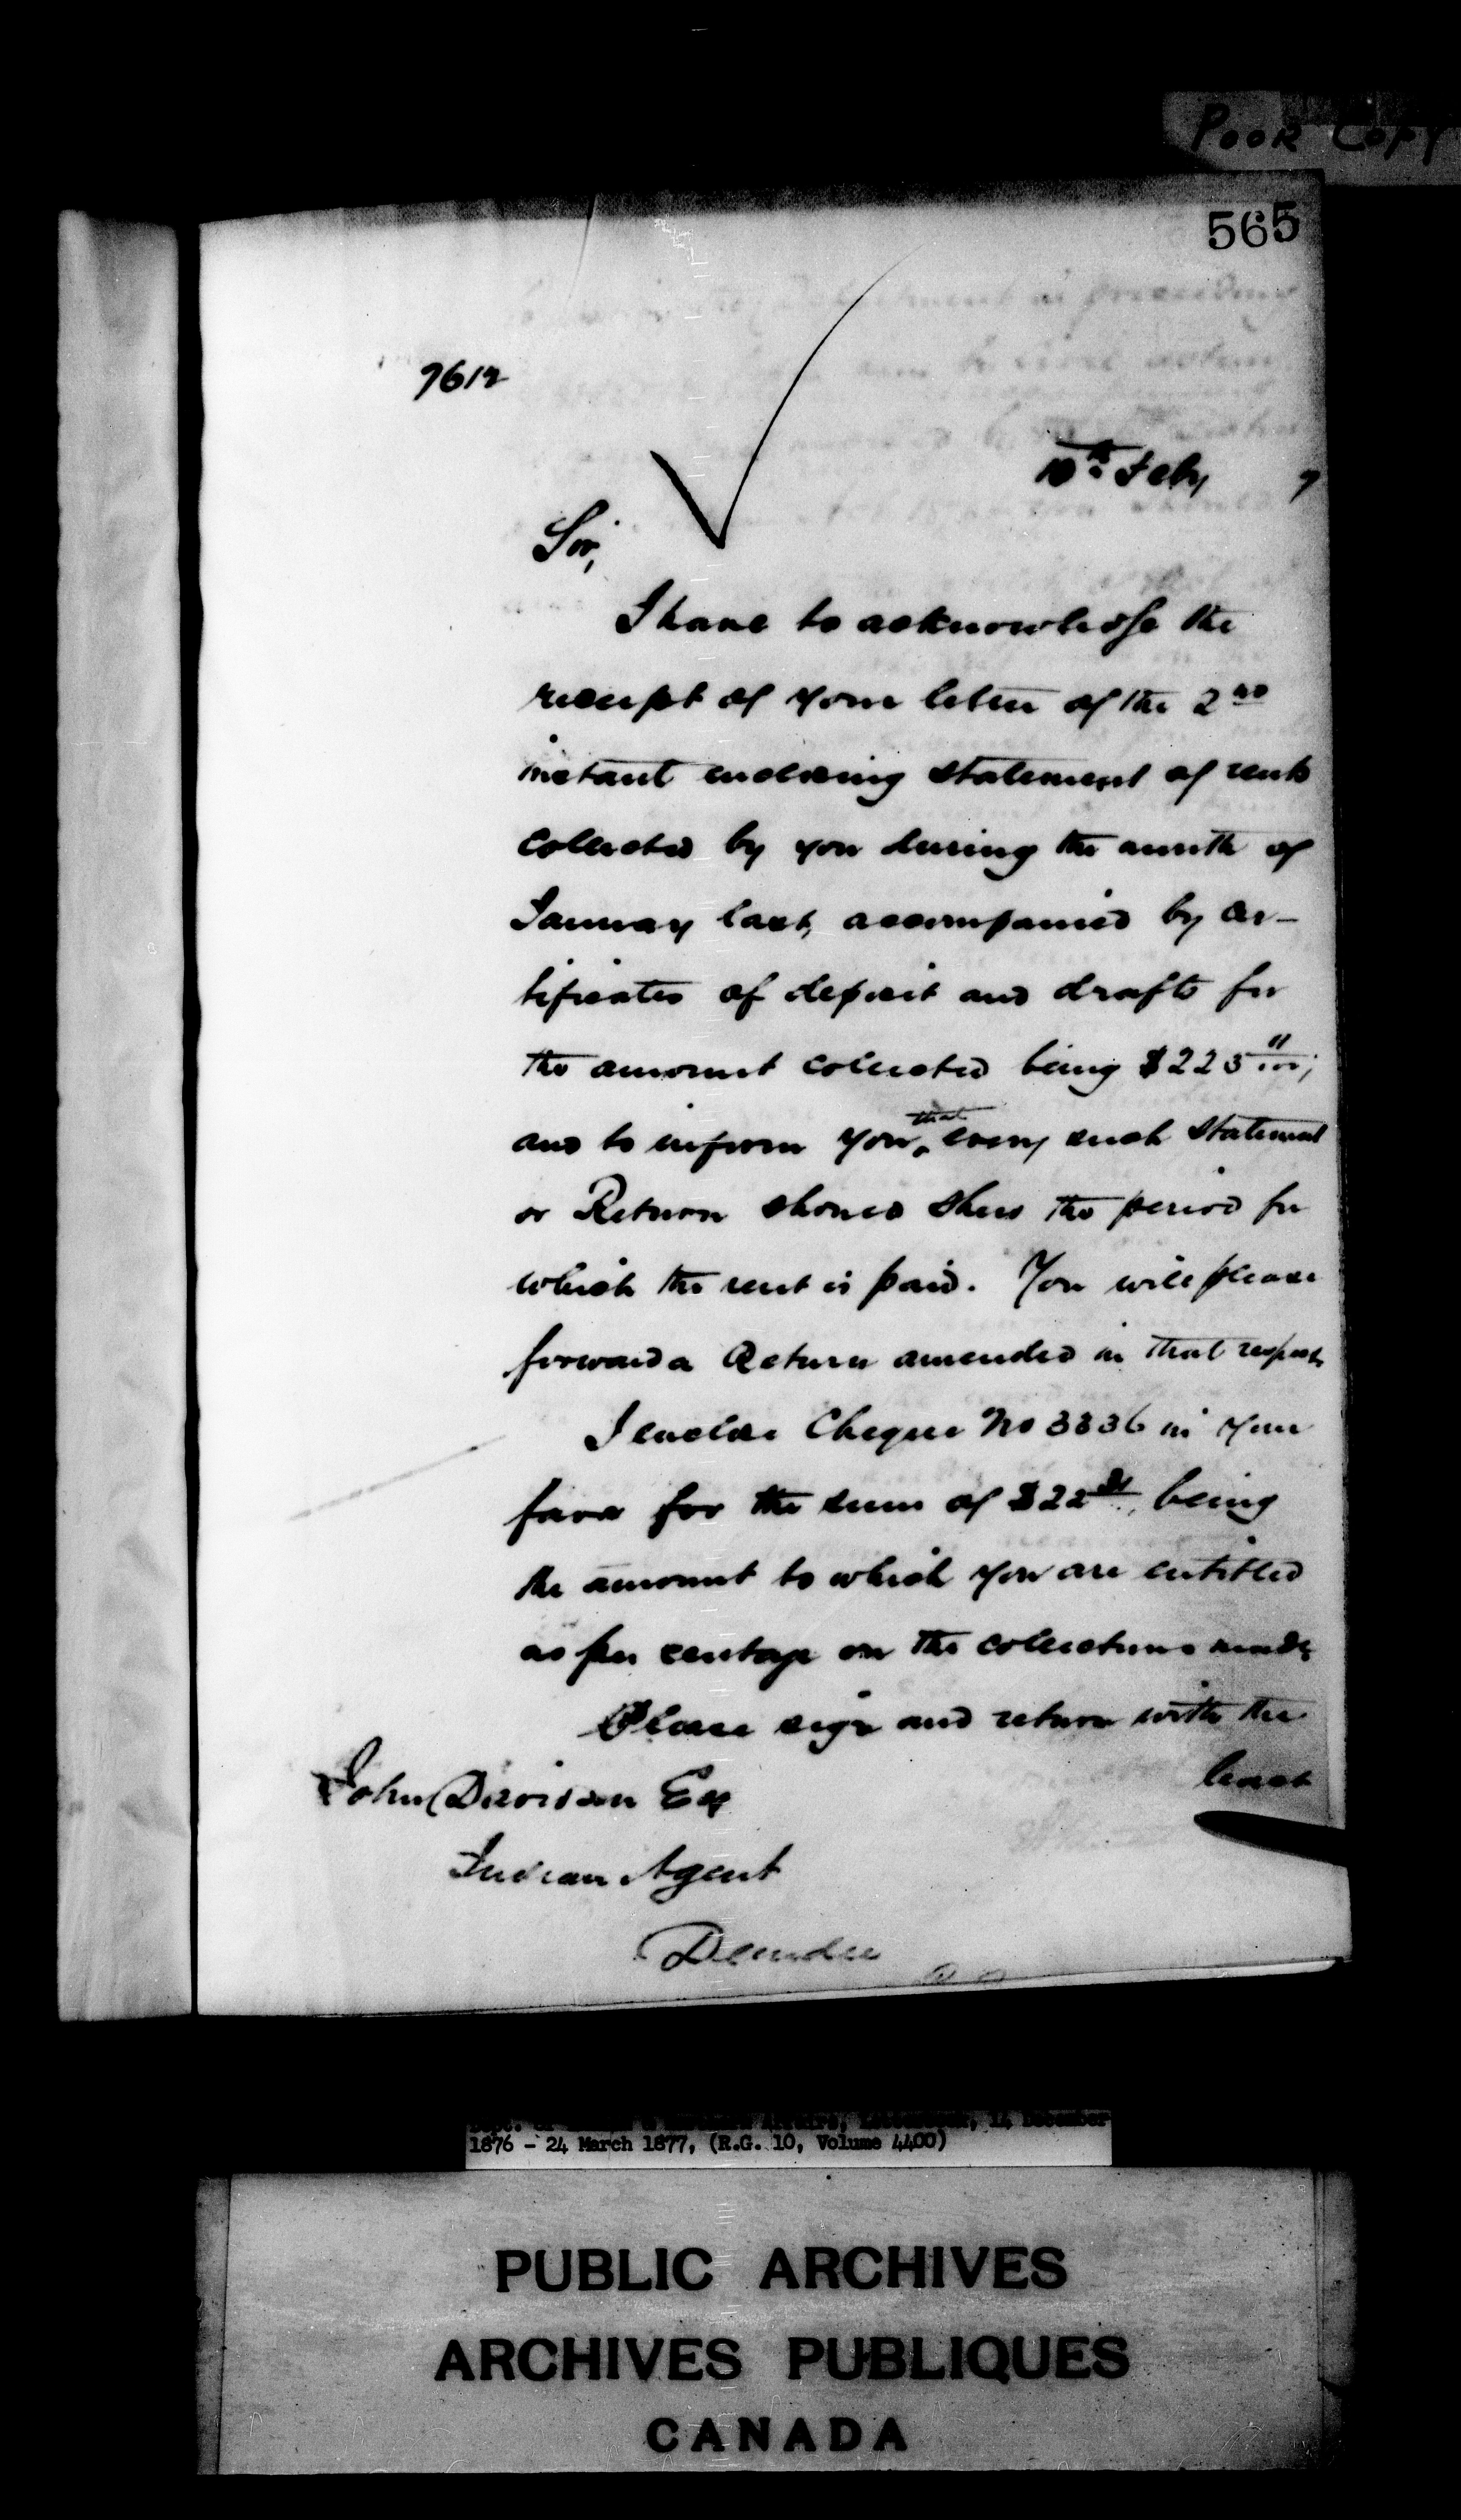 Poor Copy
565
7612
10th Feby 7
Sir,
I have to acknowledge the
receipt of your letter of the 2nd
instant enclosing statement of rents
collected by you during the month of
January last, accompanied by cer-
tificates of deposit and drafts for
the amount collected being $225
and to inform you that every such statement
or Return should shew the period for
which the rent is paid. You will please
forward a Return amended in that respect
I enclose Cheque No 3336 in your
favor for the sum of $22 being
the amount to which you are entitled
as per centage on the collections made
Please sign and return with the
least
John Davidson Esq
Indian Agent
Dundee
Affairs, Letterbook, 14 December
1876 - 24 March 1877, (R.G. 10, Volume 4400)
PUBLIC ARCHIVES
ARCHIVES PUBLIQUES
CANADA